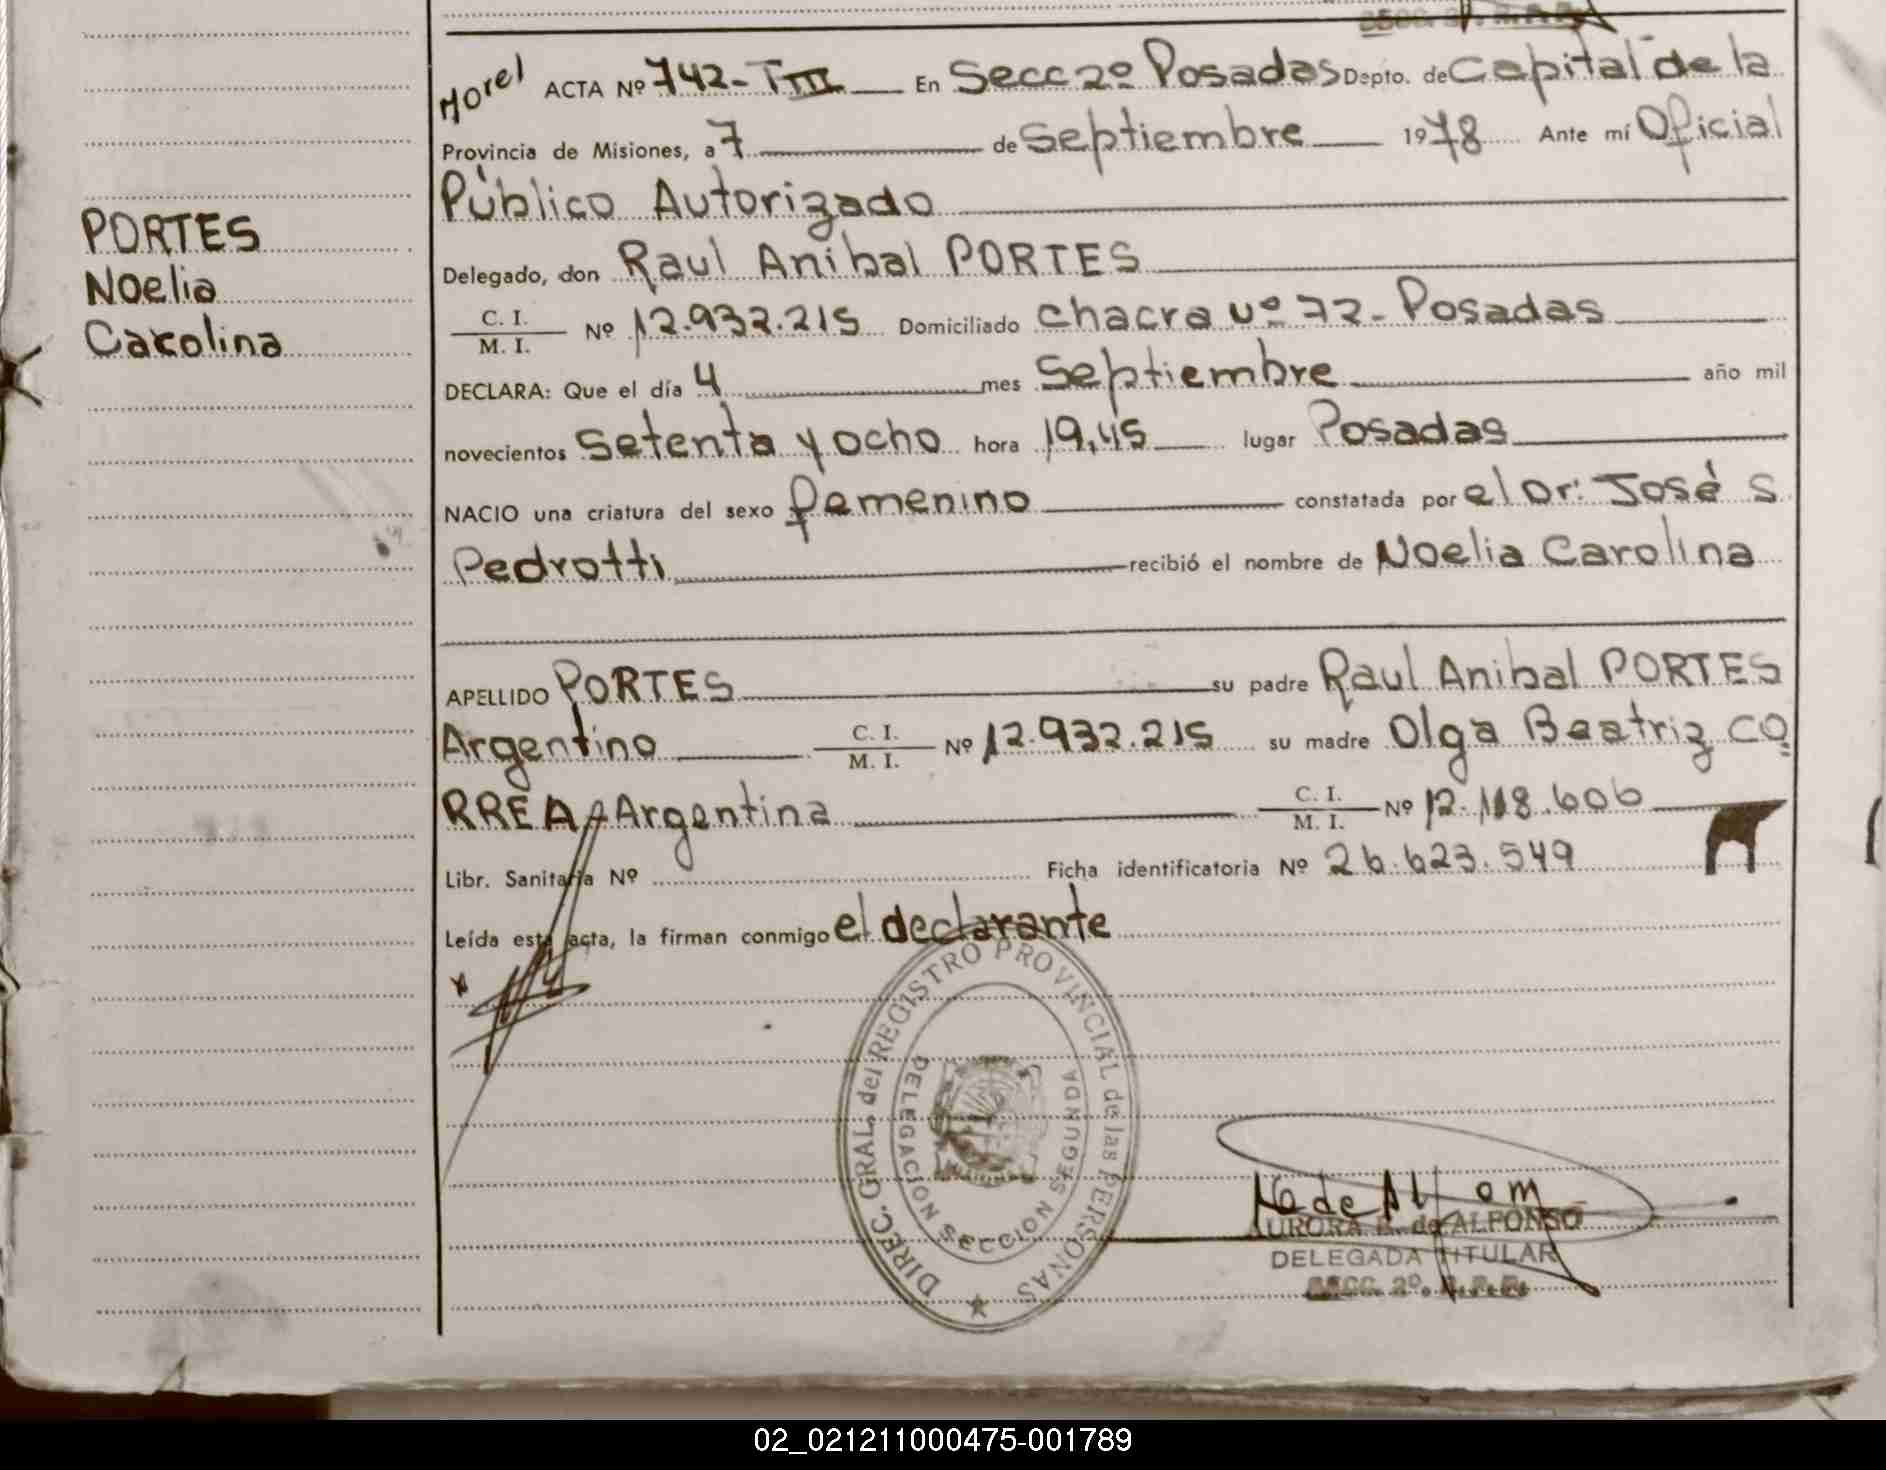 Morel ACTA Nº 742-TIII En Secc 2º Posadas Depto. de Capital de la
Provincia de Misiones, a 7 de Septiembre 1978 Ante mí Oficial
Público Autorizado
Delegado, don Raul Anibal PORTES
C. I.
M. I. Nº 12.932.215 Domiciliado chacra nº 72- Posadas
DECLARA: Que el día 4 mes Septiembre año mil
novecientos setenta y ocho hora 19,45 lugar Posadas
NACIO una criatura del sexo femenino constatada por el Dr: José S
Pedrotti recibió el nombre de Noelia Carolina
APELLIDO PORTES su padre Raul Anibal PORTES
Argentino C. I.
M. I. Nº 12.932.215 su madre Olga Beatriz CO
RREA-Argentina C. I.
M. I. Nº 12.118.606
Libr. Sanitaria Nº Ficha identificatoria Nº 26.623.549
Leída esta acta, la firman conmigo el declarante
PORTES
Noelia
Carolina
DIREC. GRAL. del REGISTRO PROVINCIAL de las PERSONAS
DELEGACION SECCION SEGUNDA
AURORA de ALFONSO
DELEGADA TITULAR
SECC. 2º. R.P.P.
02_021211000475-001789